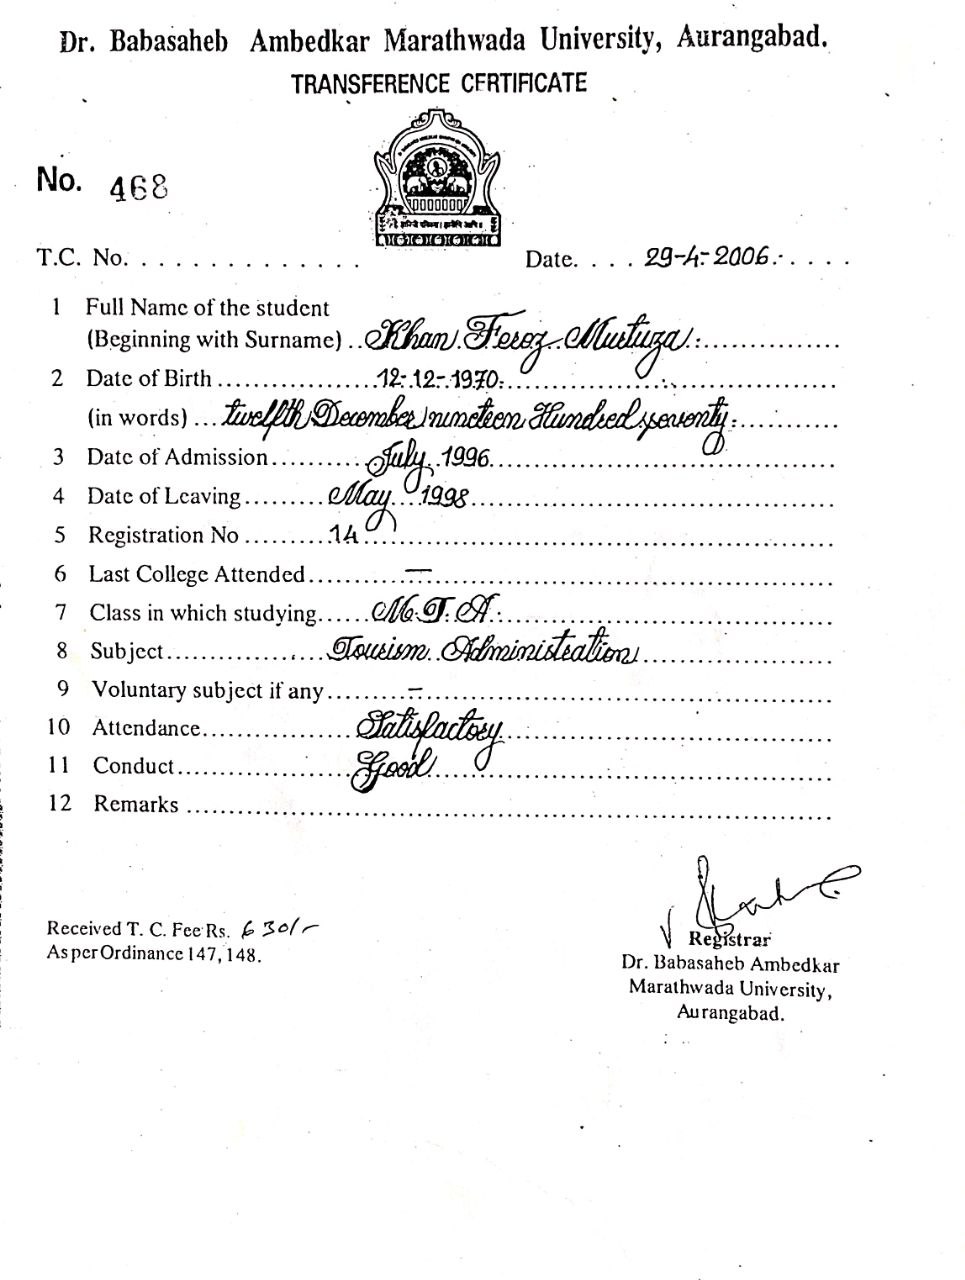 Dr. Babasaheb Ambedkar Marathwada University, Aurangabad.
TRANSFERENCE CERTIFICATE
No. 468
T.C. No. . . . . . . . . . . . . . . Date. . . . . 29-4-2006. . . . . .
1 Full Name of the student
(Beginning with Surname) .. Khan Feroz Murtuza
2 Date of Birth .................. 12-12-1970.
(in words) ... twelfth December nineteen Hundred seventy.
3 Date of Admission.......... July 1996
4 Date of Leaving......... May 1998
5 Registration No ......... 14
6 Last College Attended.......... —
7 Class in which studying...... M.T.A.
8 Subject................ Tourism Administration
9 Voluntary subject if any ......... —
10 Attendance............... Satisfactory
11 Conduct................. Good
12 Remarks ........................................
Received T. C. Fee Rs. 630/-
As per Ordinance 147, 148.
Registrar
Dr. Babasaheb Ambedkar
Marathwada University,
Aurangabad.